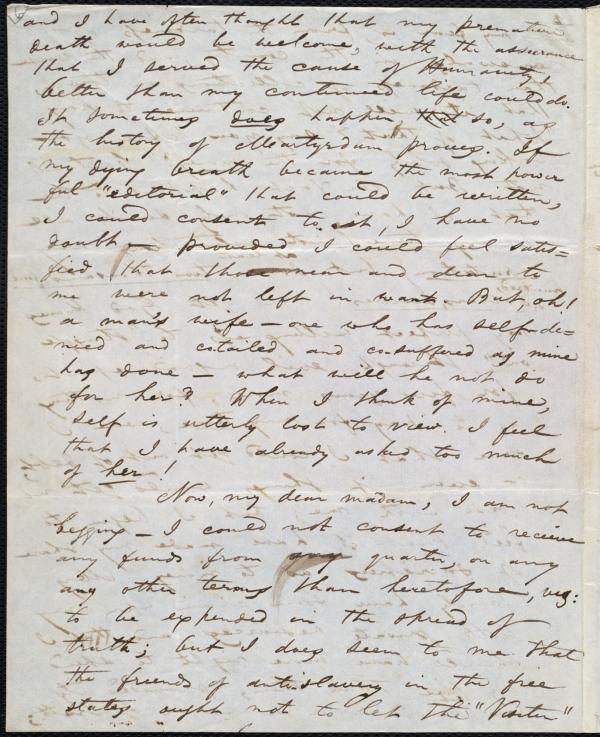 and I have often thought that my premature
death would be welcome, with the assurance
that I served the cause of Humanity,
better than my continued life could do.
It sometimes does happen, so, as
the history of Martyrdom proves. If
my dying breath became the most power
ful "editorial" that could be written,
I could consent to it, I have no
doubt — provided I could feel satis=
fied that those near and dear to
me were not left in want. But, oh!
a man's wife — one who has self-de=
nied and co-toiled and co-suffered as mine
has done — what will he not do
for her? When I think of mine,
self is utterly lost to view. I feel
that I have already asked too much
of her!
Now, my dear madam, I am not
begging — I could not consent to receive
any funds from any quarter, on any
any other terms than heretofore, viz:
to be expended in the spread of
truth; but I does seem to me that
the friends of antislavery in the free
states ought not to let the "Visiter"